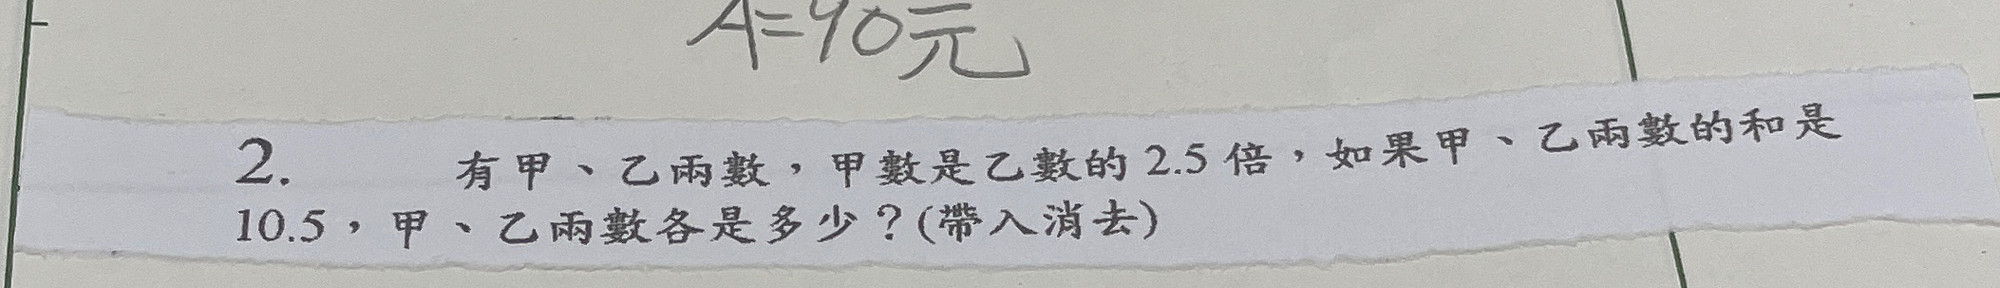 A=90元
2. 有甲、乙兩數，甲數是乙數的 2.5 倍，如果甲、乙兩數的和是
10.5，甲、乙兩數各是多少？(帶入消去)